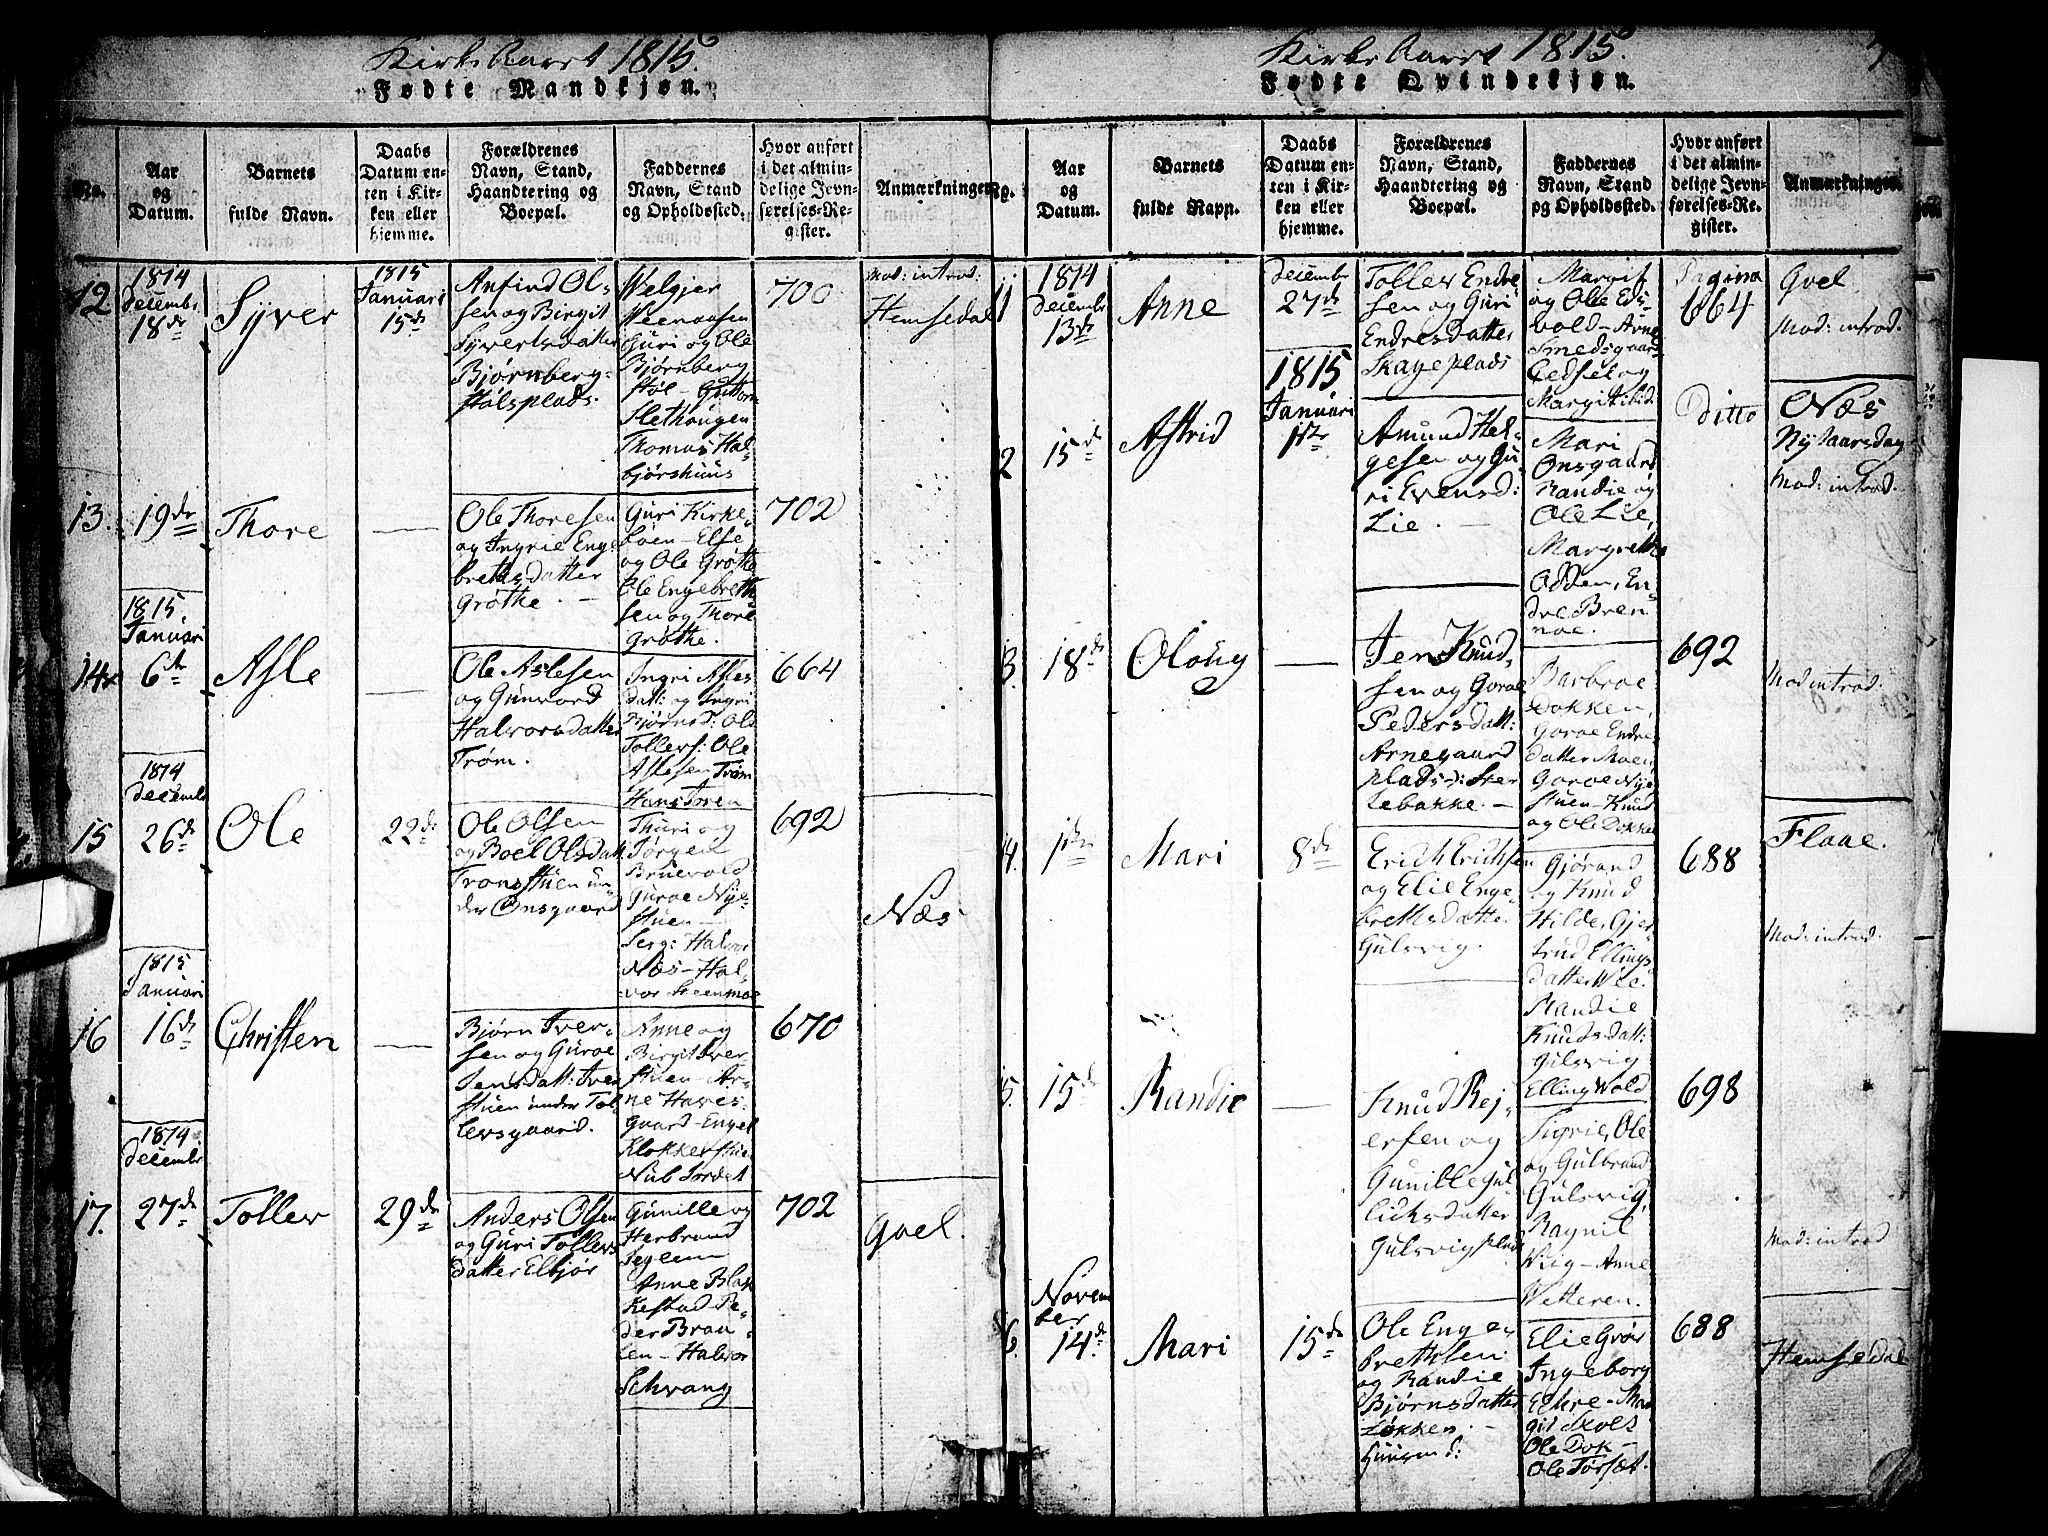 Kirke Aaret 1815.
Fødte Mandkjøn.
No.
Aar
og
Datum.
Barnets
fulde Navn.
Daabs
Datum en-
ten i Kir-
ken eller
hjemme.
Forældrenes
Navn, Stand,
Haandtering og
Boepæl.
Faddernes
Navn, Stand
og Opholdssted.
Hvor anført
i det almin-
delige Jevn-
førelses-Re-
gister.
Anmærkninger.
12
1814
Decembr
18de
Syver
1815
Januari
15de
Anfind Ol-
sen og Birgit
Syvertsdatter
Bjørnberg-
støls plads.
Welgjer
Guri og Ole
Bjørnberg
støl - Guttorm
Slethaugen
Thomas Hal-
bjørshuus
700
Mod: introd:
Hemsedal
13.
19de
Thore
Ole Thoresen
og Ingrie Enge
brethsdatter
Grøthe. -
Guri Kirke-
böen - Else
og Ole Grøthe
Ole Engebreth
sen og Thore
Grøthe.
702
1815.
Januari
14
6te
Asle
Ole Aslesen
og Gunvord
Halvorsdatter
Trøm.
Ingri Asles
datt: og Ingri
Bjørnsd: Ole
Tollefs: Ole
Aslesen Trøm
Hans Toren
664
1814
Decembr
15
26de
Ole
22de
Ole Olsen
og Boel Olsdatt.
Transstuen un-
der Onsgaard
Thuri og
Jørgen
Bruevold
Guroe Nye-
stuen -
Serg: Halvor
Næs - Hal-
vor Steenmoe
692
Næs
1815
Januari
16
16de
Christen
Bjørn Iver-
sen og Guroe
Jensdatt: Tver
stuen under Tol-
lefsgaard.
Anne og
Birgit Tver-
stuen - Ar-
ne Haves-
Gaard - Engel
Klokkerstuen
Nub Jordet
670
1814
Decembr
17.
27de
Tollev
29de
Anders Olsen
og Guri Tollevs
datter Elbjør
Gunille og
Herbrand
Seglem
Anne Blak
kestad - Pe-
der Brau-
ten - Halvor
Schvang
702
Goel.
Kirke Aaret 1815.
Fødte Qvindekjøn.
No.
Aar
og
Datum.
Barnets
fulde Navn.
Daabs
Datum en-
ten i Kir-
ken eller
hjemme.
Forældrenes
Navn, Stand,
Haandtering og
Boepæl.
Faddernes
Navn, Stand
og Opholdssted.
Hvor anført
i det almin-
delige Jevn-
førelses-Re-
gister.
Anmærkninger.
11
1814
Decembr
13de
Anne
Decembr
27de
Tollev Endre
sen og Guri
Endresdatter
Skageplads
Margit
og Ole Eds-
vold - Arne
Smedsgaard
Gedsel og
Margit ibid.
Pagina
664
Goel
Mod: introd.
2
15de
Astrid
1815
Januari
1ste
Amund Hel-
gesen og Gu-
ri Evensd:
Lie. -
Mari
Onsgaard
Randie og
Ole Lie,
Margrethe
Odden, En-
dre Bren
noe.
Ditto
Næs
Nytaarsdag
Mod: introd.
3.
18de
Oloug
Jen Knud-
sen og Goroe
Pedersdatt:
Arnegaard
plads: Sker
tebakke. -
Barbroe
Dokken,
Goroe Endre
datter Moen
Goroe Nye
stuen - Knud
og Ole Dokken
692
Mod introd:
4.
1ste
Mari
8de
Erich Erichsen
og Elie Enge-
brethsdatter
Gulsvig.
Gjørand
og Knud
Hilde, Gjer-
trud Ellings
datter Wee.
Randie
Knudsdatt:
Gulsvig
Elling Wold
688
Flaae.
Mod: introd.
5.
15de
Randie
Knud Rej-
ersen og
Gunille Gul-
lichsdatter
Gulsvig plads
Sigrie, Ole
og Gulbrand
Gulsvig,
Ragnil
Wiig - Anne
Wetteren.
698
Mod: introd
6.
Novem
ber
14de
Mari
15de
Ole Enge-
brethsen
og Randie
Bjørnsdatter
Løkken. -
Huusmd:
Elie Grør
Ingeborg
Echre - Mar
git Skoes
Ole Dok -
Ole Torset.
688
Hemsedal